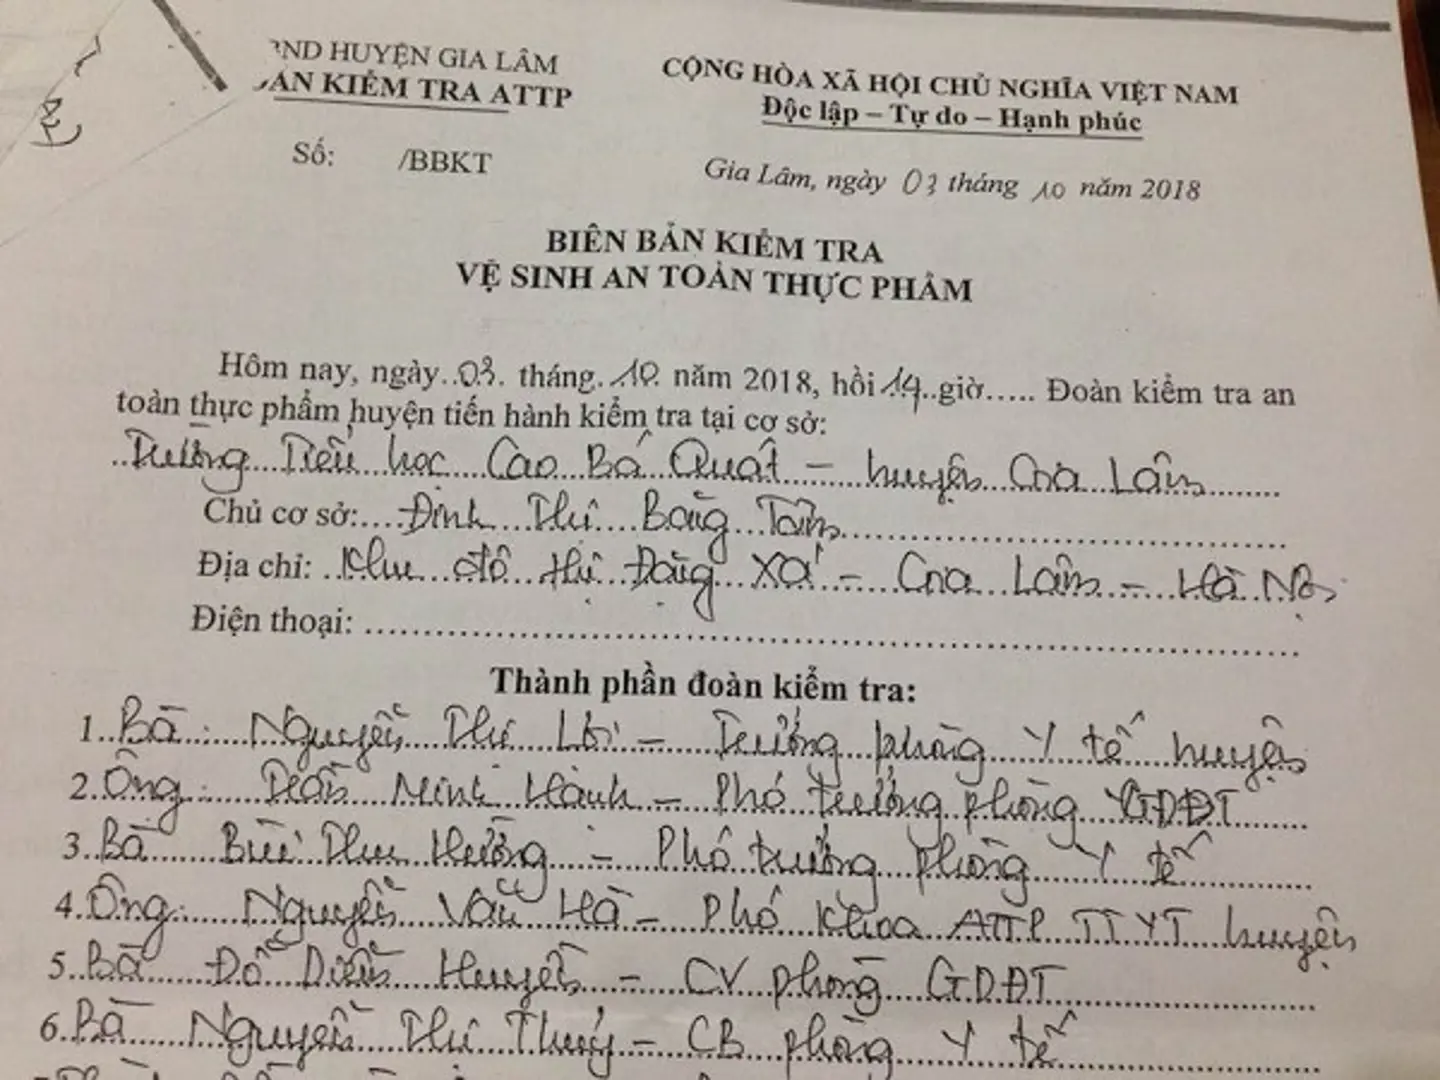 BND HUYỆN GIA LÂM
ÀN KIỂM TRA ATTP
CỘNG HÒA XÃ HỘI CHỦ NGHĨA VIỆT NAM
Độc lập – Tự do – Hạnh phúc
Số: /BBKT
Gia Lâm, ngày 03 tháng 10 năm 2018
BIÊN BẢN KIỂM TRA
VỆ SINH AN TOÀN THỰC PHẨM
Hôm nay, ngày 03 tháng 10 năm 2018, hồi 14 giờ..... Đoàn kiểm tra an
toàn thực phẩm huyện tiến hành kiểm tra tại cơ sở:
Trường Tiểu học Cao Bá Quát – huyện Gia Lâm
Chủ cơ sở: Đinh Thị Băng Tâm
Địa chỉ: Khu đô thị Đặng Xá – Gia Lâm – Hà Nội
Điện thoại:
Thành phần đoàn kiểm tra:
1. Bà: Nguyễn Thị Lời – Trưởng phòng Y tế huyện
2. Ông: Trần Minh Hành – Phó trưởng phòng GDĐT
3. Bà Bùi Thu Hường – Phó trưởng phòng Y tế
4. Ông: Nguyễn Văn Hà – Phó khoa ATTP TTYT huyện
5. Bà Đỗ Diễn Huyền – CV phòng GDĐT
6. Bà Nguyễn Thị Thuý – CB phòng Y tế